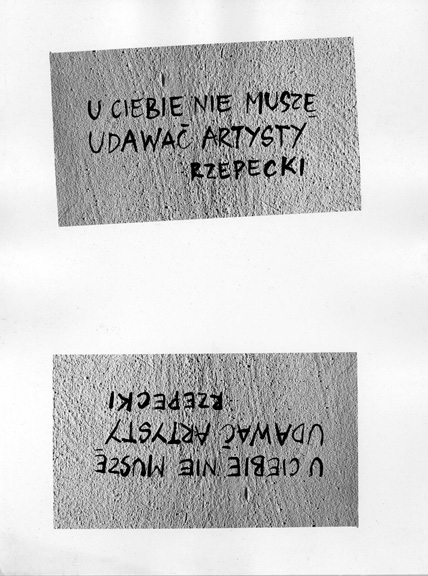 U CIEBIE NIE MUSZĘ
UDAWAĆ ARTYSTY
RZEPECKI
U CIEBIE NIE MUSZĘ
UDAWAĆ ARTYSTY
RZEPECKI